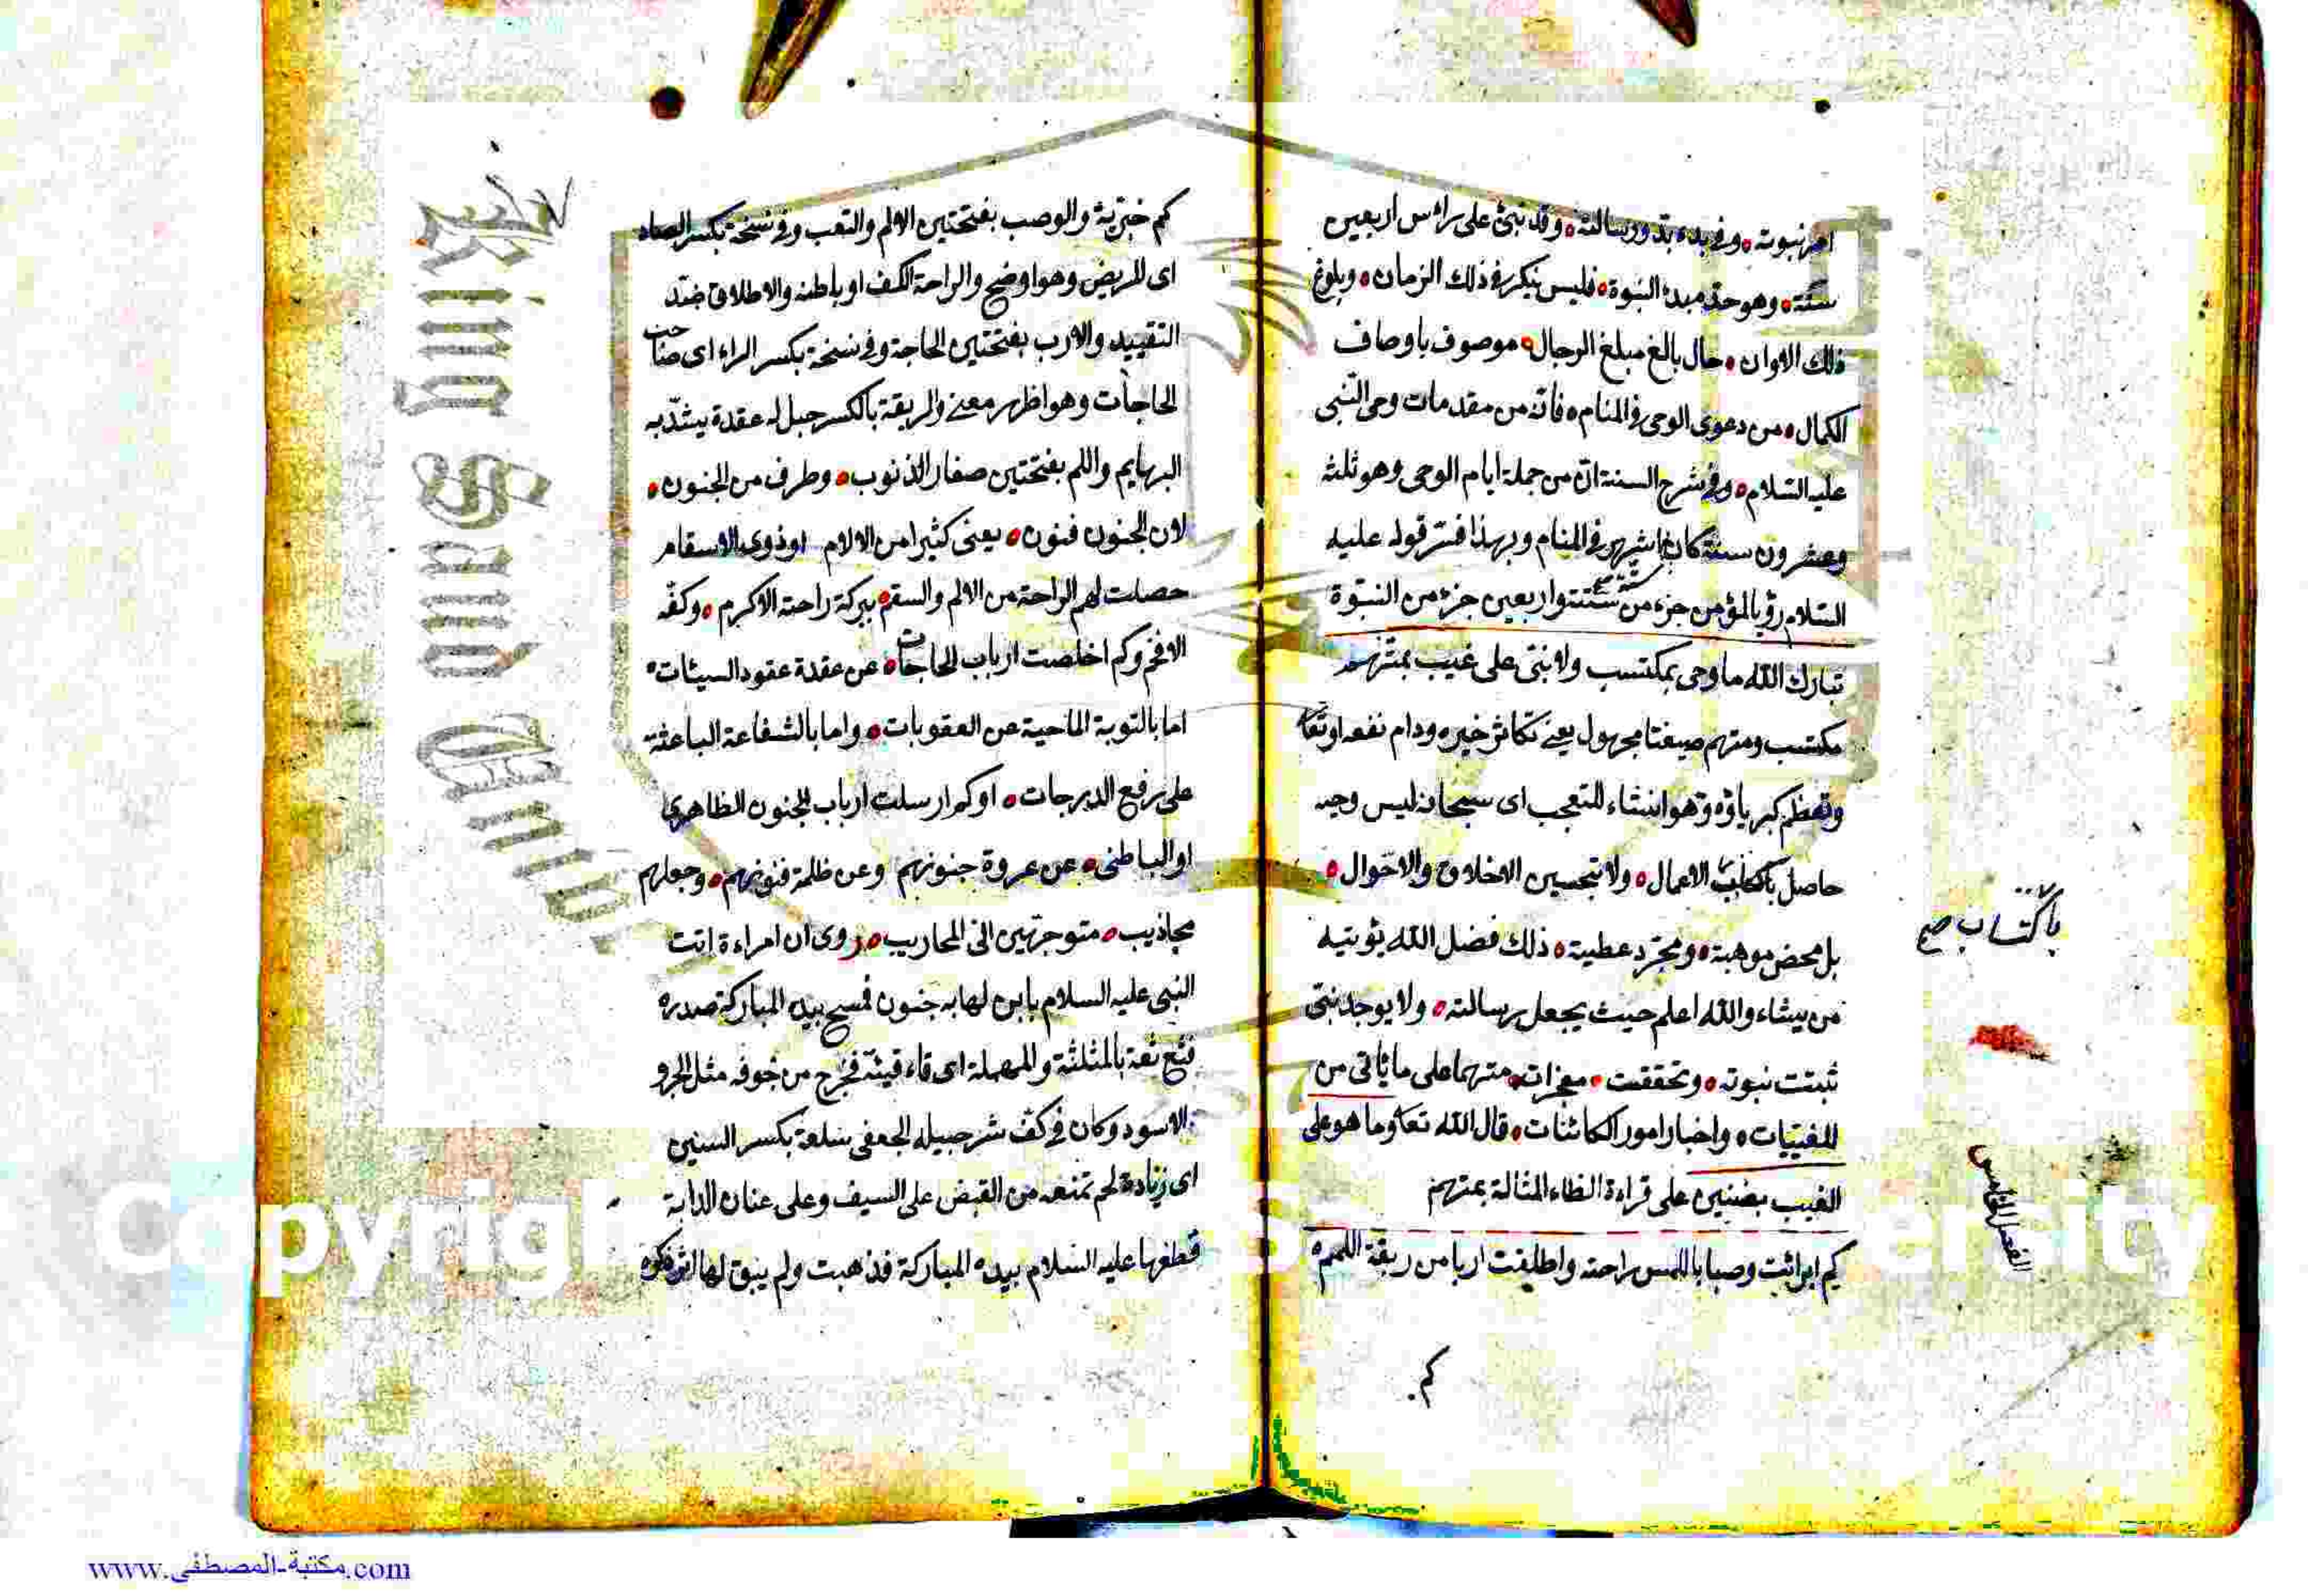 امر نبوته وفى بدء بدو رسالته وقد نبئ على راس اربعين
سنة وهو حد مبدء النبوة فليس ينكر فى ذلك الزمان وبلوغ
ذلك الاوان حال بالغ مبلغ الرجال موصوف باوصاف
الكمال من دعوى الوحى فى المنام فانه من مقدمات وحى النبى
عليه السلام وفى شرح السنة ان من جملة ايام الوحى وهو ثلثة
وعشرون سنة كان اشهر فى المنام وبهذا فسر قوله عليه
السلام رؤيا المؤمن جزء من ستة واربعين جزء من النبوة
تبارك الله ما وحى بمكتسب ولا نبى على غيب بمتهم
مكتسب ومتهم صيغتا مجهول يعنى تكاثر خيره ودام نفعه او تعا
وتعظم كبرياؤه وهو انشاء للتعجب اى سبحانه ليس وحيه
حاصل الاعمال ولا بتحسين الاخلاق والاحوال
باكتساب صح
بل محض موهبة ومجرد عطية ذلك فضل الله يؤتيه
من يشاء والله اعلم حيث يجعل رسالته ولا يوجد نبى
ثبتت نبوته وتحققت معجزاته متهما على ما ياتى من
المغيبات واخبار امور الكائنات قال الله تعا وما هو على
الغيب بضنين على قراءة الظاء المثالة بمتهم
الفصل الخامس
كم ابرأت وصبا باللمس راحته واطلقت اربا من ربقة اللمم
كم
كم خبرية والوصب بفتحتين الالم والتعب وفى نسخة بكسر الصاد
اى المريض وهو اوضح والراحة الكف او باطنه والاطلاق ضد
التقييد والارب بفتحتين الحاجة وفى نسخة بكسر الراء اى صاحب
الحاجات وهو اظهر معنى والربقة بالكسر حبل له عقدة يشد به
البهايم واللم بفتحتين صغار الذنوب وطرف من الجنون
لان الجنون فنون يعنى كثيرا من الالام او ذوى الاسقام
حصلت لهم الراحة من الالم والسقم ببركة راحته الاكرم وكفه
الافخم وكم اخلصت ارباب الحاجات عن عقدة عقود السيئات
اما بالتوبة الماحية عن العقوبات واما بالشفاعة الباعثة
على رفع الدرجات او كم ارسلت ارباب الجنون الظاهرى
او الباطنى عن عروة جنونهم وعن ظلمة فنونهم وجعلهم
مجاذيب متوجهين الى المحاريب روى ان امراءة اتت
النبى عليه السلام بابن لها به جنون فمسح بيده المباركة صدره
فثع ثعة بالمثلثة والمهملة اى قاء قيئة فخرج من جوفه مثل الجرو
الاسود وكان فى كف شرحبيل الجعفى سلعة بكسر السين
اى زيادة لحم تمنعه من القبض على السيف وعلى عنان الدابة
فطفها عليه السلام بيده المباركة فذهبت ولم يبق لها اثر
Copyrig ersity
King Saud
www.مكتبة-المصطفى.com